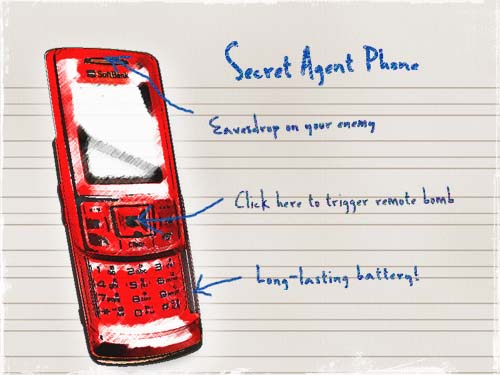 Secret Agent Phone
SoftBank
Eavesdrop on your enemy
Click here to trigger remote bomb
Long-lasting battery!
1 2 3
4 5 6
7 8 9
* 0 #